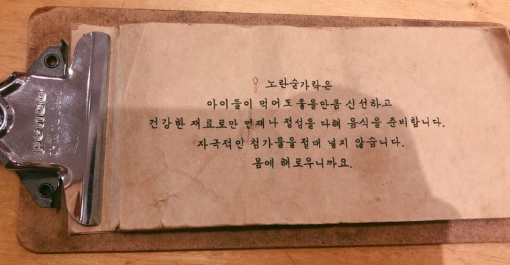 노란숟가락은
아이들이 먹어도 좋을만큼 신선하고
건강한 재료로만 언제나 정성을 다해 음식을 준비합니다.
자극적인 첨가물을 절대 넣지 않습니다.
몸에 해로우니까요.